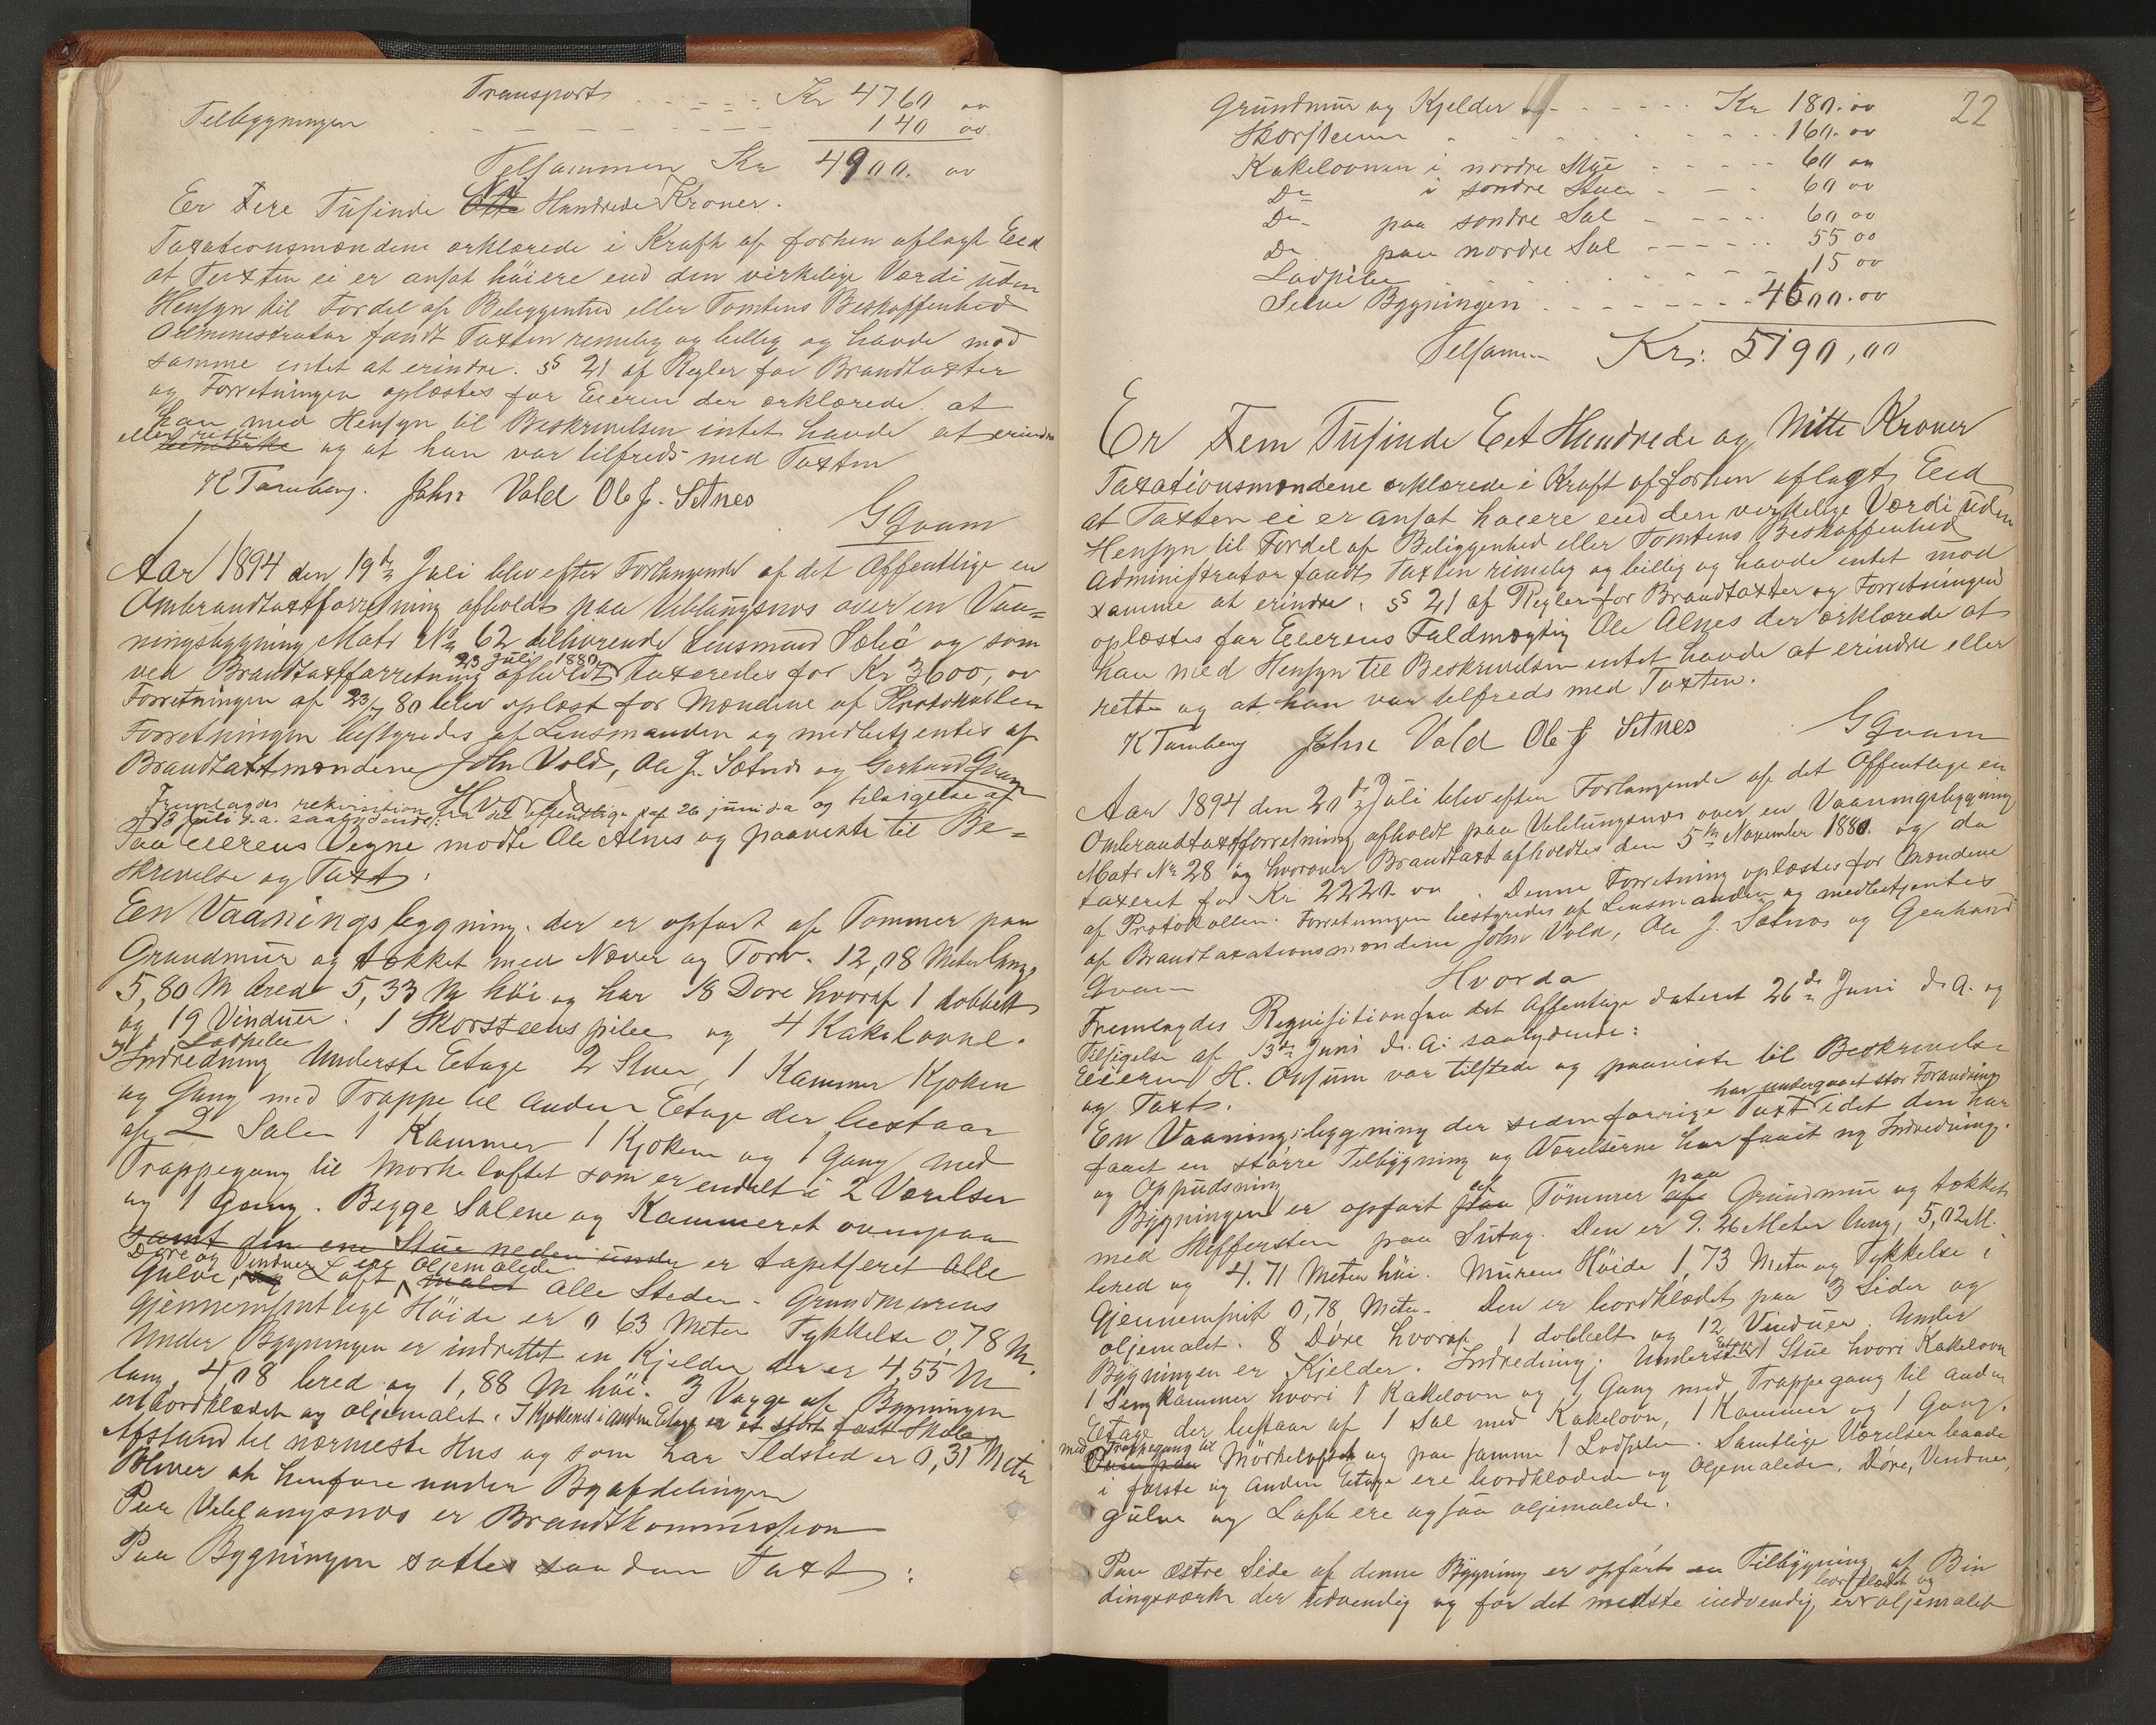 Transport . . . . . Kr 4760 00
Tilbygningen . . . . . 140 00
Tilsammen Kr 4900. 00
Er Fire Tusinde Otte Ni Hundrede Kroner.
Taxationsmændene erklærede i Kraft af forhen aflagt Eed
at Taxten ei er ansat høiere end den virkelige Værdi uden
Hensyn til Fordel af Beliggenhed eller Tomtens Beskaffenhed
Administrator fandt Taxten rimelig og billig og havde mod
samme intet at erindre. § 21 af Regler for Brandtaxter
og Forretningen oplæstes for Eieren der erklærede at
han med Hensyn til Beskrivelsen intet havde at erindre
eller rette bemærke og at han var tilfreds med Taxten
K Tarnberg. John Vold Ole J. Sætnes
G Qvam
Aar 1894 den 19de Juli blev efter Forlangende af det Offentlige en
Ombrandtaxtforretning afholdt paa Veblungsnes over en Vaa=
ningsbygning Matr No 62 tilhørende Lensmand Sæliø og som
ved Brandtaxtforretning afholdt 23 Juli 1880 taxeredes for Kr 3600,00
Forretningen af 23/7 80 blev oplæst for Mændene af Protokollen
Forretningen bestyredes af Lensmanden og medbetjentes af
Brandtaxtmændene John Vold, Ole J. Sætnes og Gerhard Qvam
Hvorda
Fremlagdes rekvisition fra det offentlige daf 26 juni d.a og tilsigelse af
13 juli d.a. saalydende:
Paa Eierens Vegne mødte Ole Alnes og paaviste til Be=
skrivelse og Taxt:
Een Vaaningsbygning der er opført af Tømmer paa
Grundmur og tækket med Næver og Torv. 12,08 Meter lang,
5,80 M bred 5,33 M høi og har 18 Døre hvoraf 1 dobbelt
og 19 Vinduer. 1 Skorsteenspibe og 4 Kakelovne.
og 1 Lodpibe
Indredning Underste Etage 2 Stuer, 1 Kammer Kjøken
og Gang med Trappe til anden Etage der bestaar
af 2 Sale 1 Kammer 1 Kjøken og 1 Gang med
Trappegang til Mørkeloftet som er inddelt i 2 Værelser
og 1 Gang. Begge Salene og Kammeret ovenpaa
samt den ene Stue neden under er tapetseret Alle
Døre og Vinduer ere Oljemalede
Gulve, og Loft malet alle Steder. Grundmurens
Gjennemsnitlige Høide er 0 63 Meter Tykkelse 0,78 M.
Under Bygningen er indrettet en Kjelder der er 4,55 M
lang, 4,08 bred og 1,88 M høi. 3 Vægge af Bygningen
er bordklædt og oljemalet. I Kjøkkenet i anden Etage er et stort fast Skab
Afstand til nærmeste Hus og som har Ildsted er 0,31 Meter
Bliver at henføre under Byafdelingen
Paa Veblungsnes er Brandtkommission
Paa Bygningen sattes saadan Taxt:
22
Grundmur og Kjelder . . . . . Kr 180.00
Skorstenen . . . . . 160.00
Kakelovnen i nordre Stue . . . . 60 00
Do i søndre Stue . . . 60 00
Do paa søndre Sal . . . . 60,00
Do paa nordre Sal . . . . 55 00
Lodpibe . . . . 15 00
Selve Bygningen . . . . . 4600.00
Tilsammen Kr: 5190,00
Er Fem Tusinde Eet Hundrede og Nitti Kroner
Taxationsmændene erklærede i Kraft af forhen aflagt Eed
at Taxten ei er ansat høiere end den virkelige Værdi uden
Hensyn til Fordel af Beliggenhed eller Tomtens Beskaffenhed
Administrator fandt Taxten rimelig og billig og havde intet mod
samme at erindre. § 21 af Regler for Brandtaxter og Forretningen
oplæstes for Eierens Fuldmægtig Ole Alnes der erklærede at
han med Hensyn til Beskrivelsen intet havde at erindre eller
rette og at han var tilfreds med Taxten.
K Tarnberg John Vold Ole J Sætnes
G Qvam
Aar 1894 den 20de Juli blev efter Forlangende af det Offentlige en
Ombrandtaxtforretning afholdt paa Veblungsnes over en Vaaningsbygning
Matr No 28 og hvorover Brandtaxt afholdtes den 5te November 1880. og da
taxeret for Kr 2220.00. Denne Forretning oplæstes for Mændene
af Protokollen. Forretningen bestyredes af Lensmanden og medbetjentes
af Brandtaxationsmændene John Vold, Ole J. Sætnes og Gerhard
Qvam
Hvorda
Fremlagdes Requisition fra det Offentlige dateret 26de Juni d. A. og
Tilsigelse af 13de Juni d. A: saalydende:
Eieren H. Onsum var tilstede og paaviste til Beskrivelse
og Taxt.
En Vaaningsbygning der siden forrige Taxt har undergaaet stor Forandring idet den har
faaet en større Tilbygning og Værelserne har faaet ny Indredning.
og Oppudsning
Bygningen er opført paa af Tømmer af paa Grundmur og tækket
med Skiffersten paa Sutag. Den er 9.26 Meter lang, 5,02 M.
bred og 4.71 Meter høi. Murens Høide 1,73 Meter og Tykkelse i
Gjennemsnit 0,78 Meter. Den er bordklædt paa 3 Sider og
oljemalet. 8 Døre hvoraf 1 dobbelt og 12 Vinduer. Under
Bygningen er Kjelder. Indredning: Underste Etage 1 Stue hvori Kakelovn
1 Sengkammer hvori 1 Kakelovn og 1 Gang med Trappegang til anden
Etage der bestaar af 1 Sal med Kakelovn, 1 Kammer og 1 Gang.
med Trappegang til
Oven paa Mørkeloftet og paa samme 1 Lodpibe. Samtlige Værelser baade
i første og anden Etage ere bordklædede og Oljemalede. Døre, Vinduer,
gulve og Loft ere ogsaa oljemalede.
Paa østre Side af denne Bygning er opført en Tilbygning af Bin
dingsværk der udvendig og for det meste indvendig er bordklædt og oljemalet